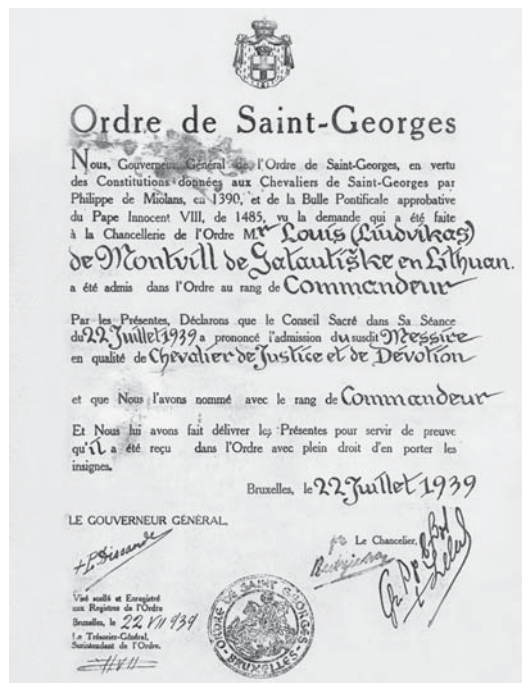 Ordre de Saint-Georges
Nous, Gouverneur Général de l'Ordre de Saint-Georges, en vertu
des Constitutions données aux Chevaliers de Saint-Georges par
Philippe de Miolans, en 1390, et de la Bulle Pontificale approbative
du Pape Innocent VIII, de 1485, vu la demande qui a été faite
à la Chancellerie de l'Ordre Mr Louis (Liudvikas)
de Montvill de Satautiške en Lithuan.
a été admis dans l'Ordre au rang de Commandeur
Par les Présentes, Déclarons que le Conseil Sacré dans Sa Séance
du 22 Juillet 1939 a prononcé l'admission du susdit Messire
en qualité de Chevalier de Justice et de Dévotion
et que Nous l'avons nommé avec le rang de Commandeur
Et Nous lui avons fait délivrer les Présentes pour servir de preuve
qu'il a été reçu dans l'Ordre avec plein droit d'en porter les
insignes.
Bruxelles, le 22 Juillet 1939
LE GOUVERNEUR GÉNÉRAL,
Le Chancelier,
Visé scellé et Enregistré
aux Registres de l'Ordre
Bruxelles, le 22 VII 939
Le Trésorier-Général,
Surintendant de l'Ordre.
ORDRE DE SAINT GEORGES
BRUXELLES